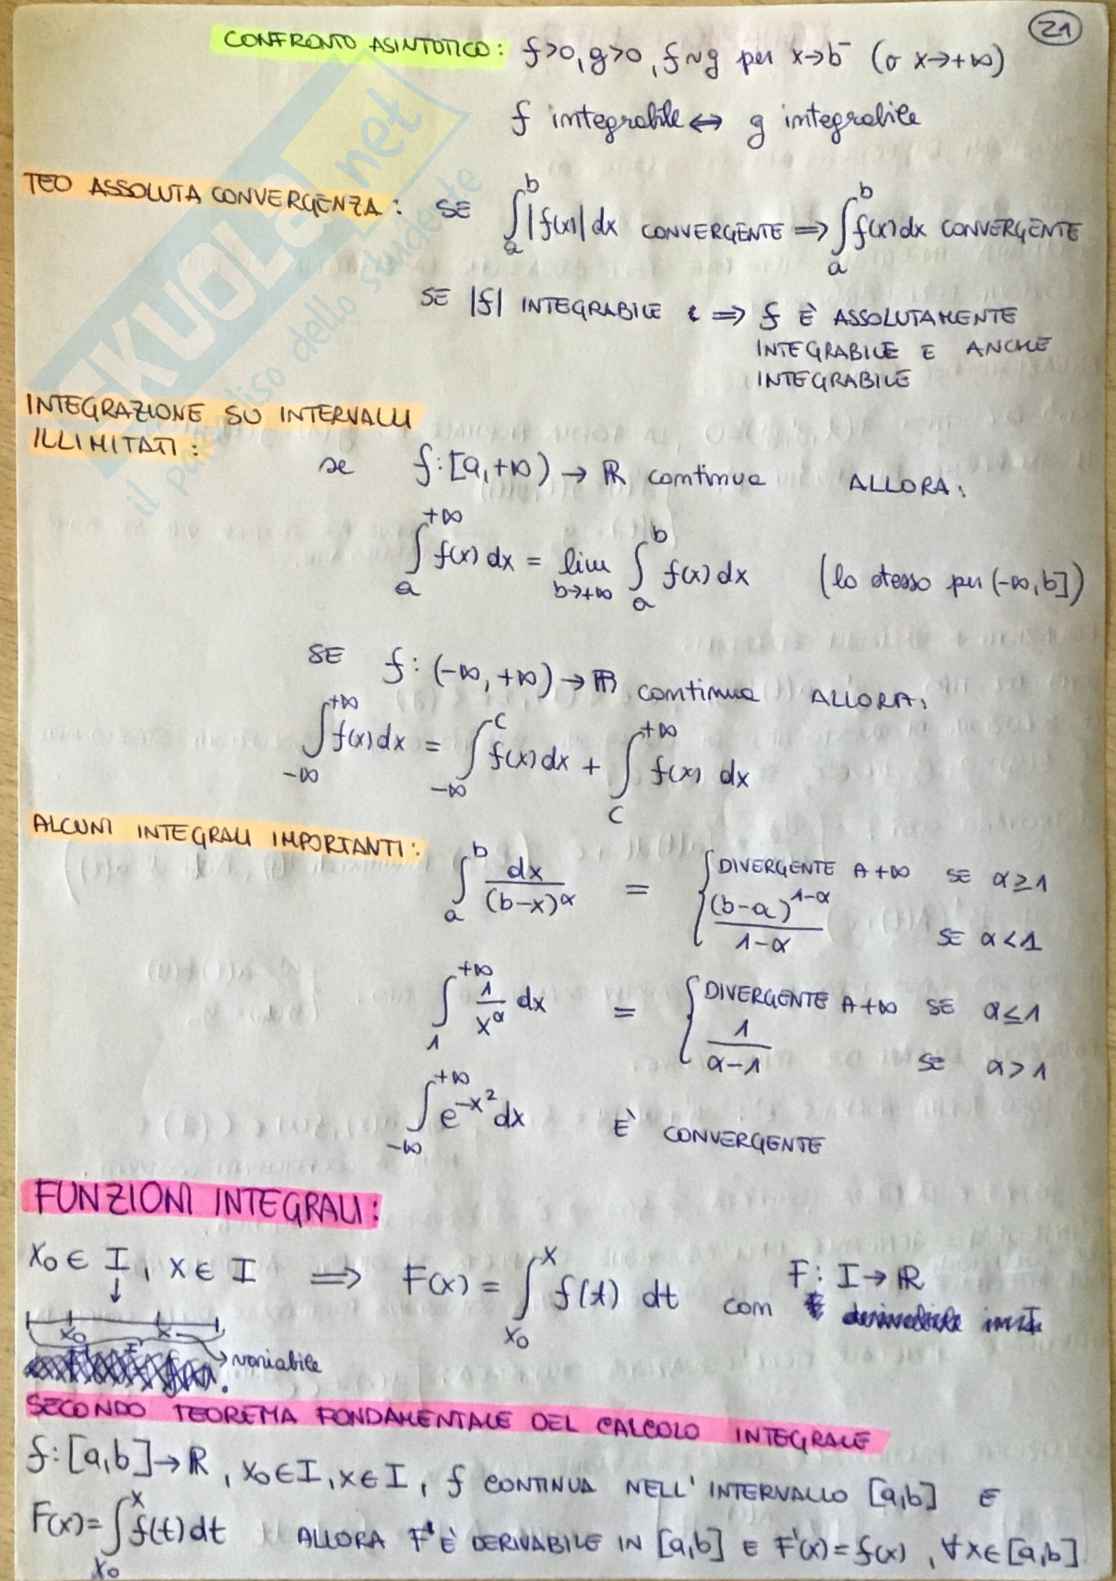 21
CONFRONTO ASINTOTICO: f>0, g>0, f~g per x→b⁻ (o x→+∞)
f integrabile ⟷ g integrabile
TEO ASSOLUTA CONVERGENZA: SE ∫_a^b |f(x)| dx CONVERGENTE ⟹ ∫_a^b f(x) dx CONVERGENTE
SE |f| INTEGRABILE ⟹ f È ASSOLUTAMENTE
INTEGRABILE E ANCHE
INTEGRABILE
INTEGRAZIONE SU INTERVALLI
ILLIMITATI:
se f: [a,+∞) → ℝ continua ALLORA:
∫_a^{+∞} f(x) dx = lim_{b→+∞} ∫_a^b f(x) dx (lo stesso per (-∞,b])
SE f: (-∞,+∞) → ℝ continua ALLORA:
∫_{-∞}^{+∞} f(x) dx = ∫_{-∞}^c f(x) dx + ∫_c^{+∞} f(x) dx
ALCUNI INTEGRALI IMPORTANTI:
∫_a^b dx/(b-x)^α = { DIVERGENTE A +∞ SE α≥1
(b-a)^{1-α}/(1-α) SE α<1
∫_1^{+∞} 1/x^α dx = { DIVERGENTE A +∞ SE α≤1
1/(α-1) SE α>1
∫_{-∞}^{+∞} e^{-x²} dx È CONVERGENTE
FUNZIONI INTEGRALI:
x₀ ∈ I, x ∈ I ⟹ F(x) = ∫_{x₀}^x f(t) dt con F: I → ℝ
x₀ x
I
variabile
SECONDO TEOREMA FONDAMENTALE DEL CALCOLO INTEGRALE
f: [a,b] → ℝ, x₀∈I, x∈I, f CONTINUA NELL'INTERVALLO [a,b] E
F(x) = ∫_{x₀}^x f(t) dt ALLORA F È DERIVABILE IN [a,b] E F'(x) = f(x), ∀x∈[a,b]
SKUOLA.net
il paradiso dello studente